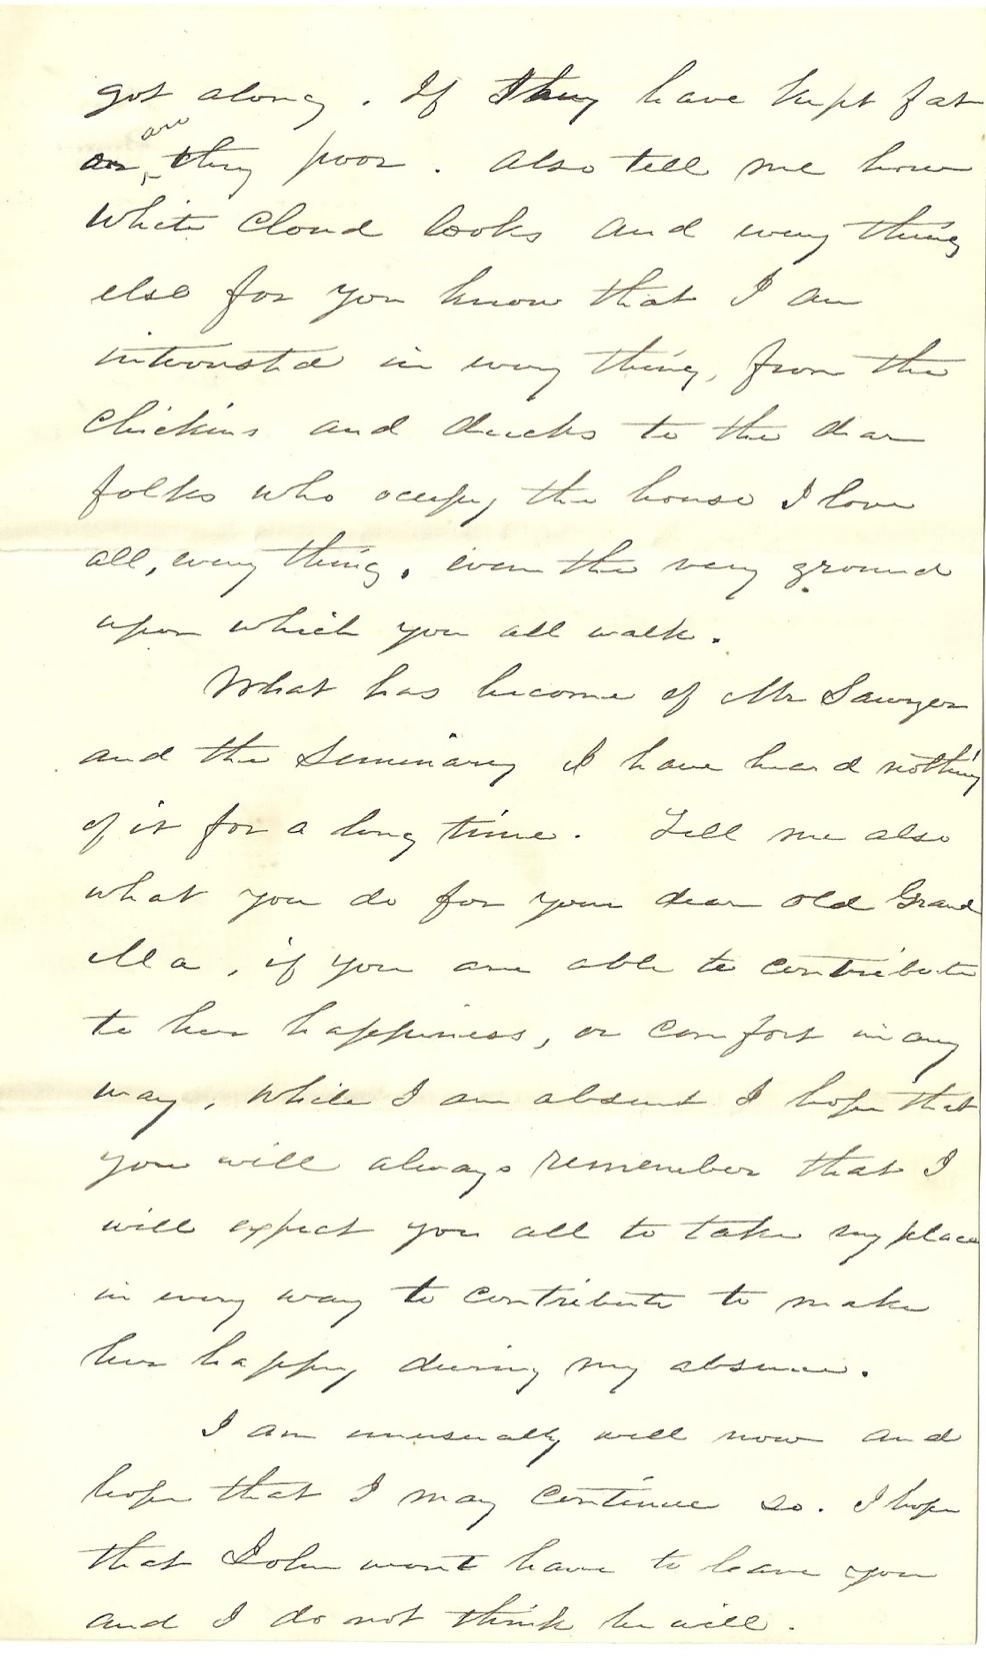 got along. If they have kept fat
or are they poor. Also tell me how
White Cloud looks and every thing
else for you know that I am
interested in every thing, from the
chickens and ducks to the dear
folks who occupy the house I love
all, every thing, even the very ground
upon which you all walk.
What has become of Mr Sawyer
and the Seminary I have heard nothing
of it for a long time. Tell me also
what you do for your dear old Grand
Ma, if you are able to contribute
to her happiness, or comfort in any
way, while I am absent I hope that
you will always remember that I
will expect you all to take my place
in every way to contribute to make
her happy during my absence.
I am unusually well now and
hope that I may continue so. I hope
that John wont have to leave you
and I do not think he will.